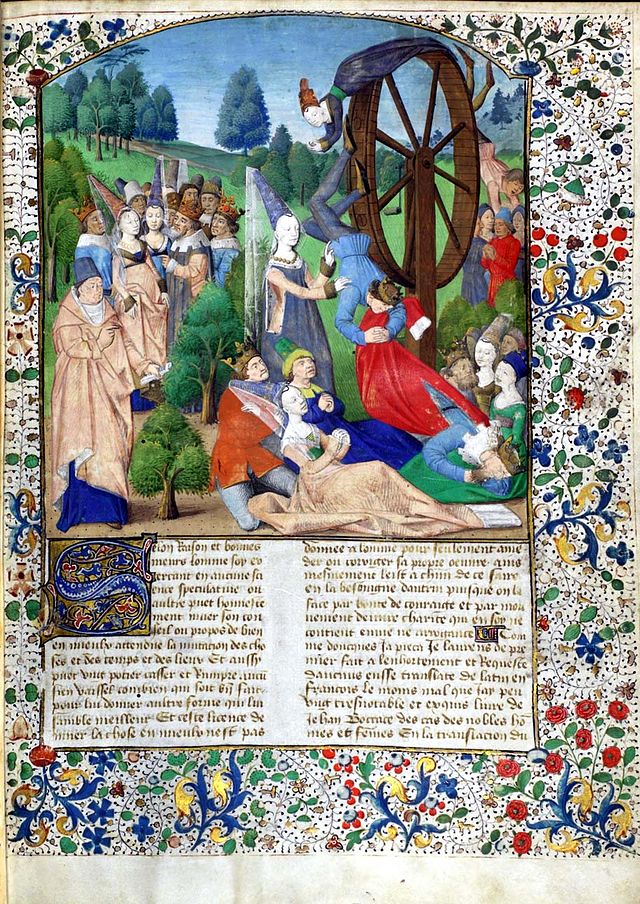 Selon raison et bonnes
meurs lomme soy ex
cercant en aucune sci
ence speculative ou
aultre puet honneste
ment muer son con
seil ou propos de bien
en mieulx attendue la mutation des cho
ses et des temps et des lieux Et aussy
puet vng potier casser et Rompre aucū
sien vaissel combien qui soit bñ fait
pour lui donner aultre forme qui lui
samble meilleur Et ceste licence de
muer la chose en mieulx nest pas
donnee a lomme pour seulement amē
der ou corriger sa propre oeuure ains
mesmement leist a chūn de ce faire
en la besoingne dautrui puisque on la
face par bonte de couraige et par mou
uement de vraie charite qui en soy ne
contient enuie ne arrogance Et co
me doncques Ja pieca Je laurens de pre
mier fait a lenhortement et Requeste
daucuns eusse translate de latin en
francois le moins mal que jay peu
vng tresnotable et exquis liure de
jehan boccace des cas des nobles hō
mes et femes En la translation du